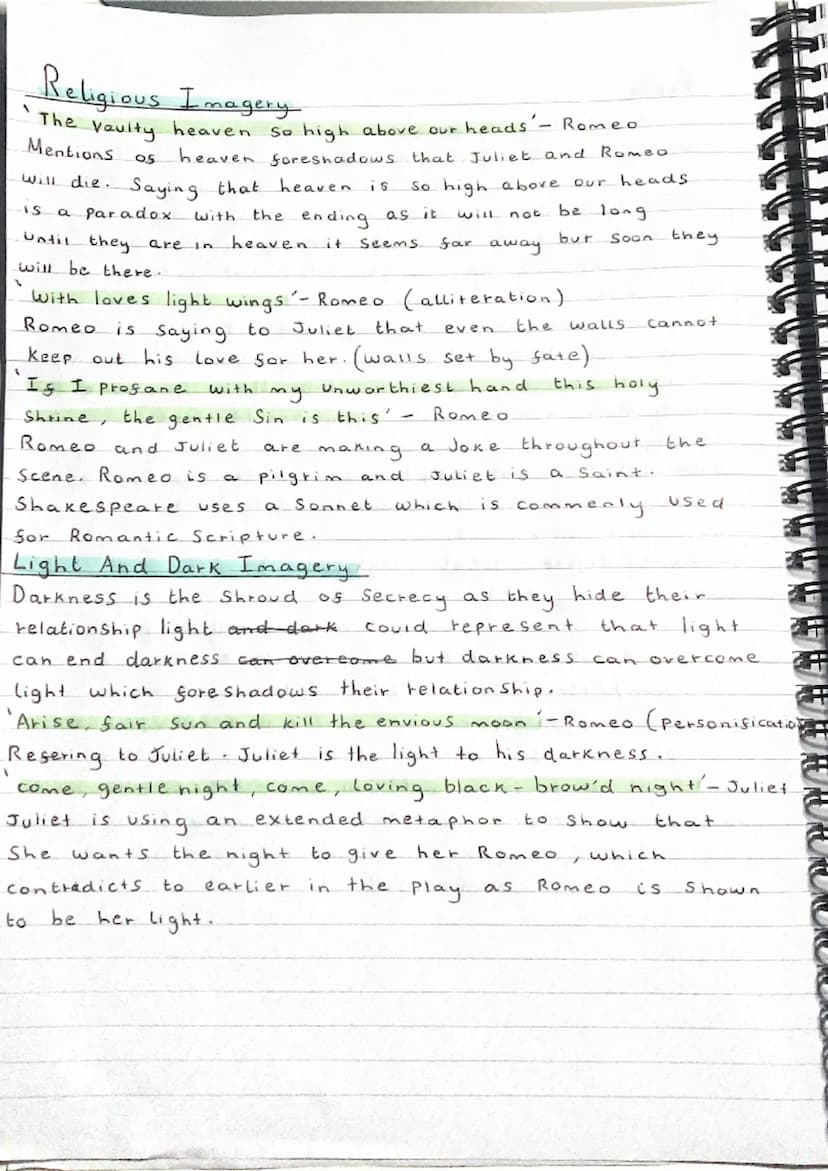 Religious Imagery
'The vaulty heaven so high above our heads' - Romeo
Mentions of heaven foreshadows that Juliet and Romeo
will die. Saying that heaven is so high above our heads
is a paradox with the ending as it will not be long
until they are in heaven it seems far away but soon they
will be there.
'With loves light wings' - Romeo (alliteration)
Romeo is saying to Juliet that even the walls cannot
keep out his love for her. (walls set by fate)
'If I profane with my unworthiest hand this holy
Shrine, the gentle Sin is this' - Romeo
Romeo and Juliet are making a Joke throughout the
scene. Romeo is a pilgrim and Juliet is a Saint.
Shakespeare uses a Sonnet which is commenly used
for Romantic Scripture.
Light And Dark Imagery
Darkness is the Shroud of Secrecy as they hide their
relationship light and dark could represent that light
can end darkness can overcome but darkness can overcome
light which foreshadows their relationship.
'Arise, fair sun and kill the envious moon' - Romeo (Personificatio
Refering to Juliet. Juliet is the light to his darkness.
'come, gentle night, come, loving black-brow'd night' - Juliet
Juliet is using an extended metaphor to show that
She wants the night to give her Romeo, which
contradicts to earlier in the play as Romeo is shown
to be her light.